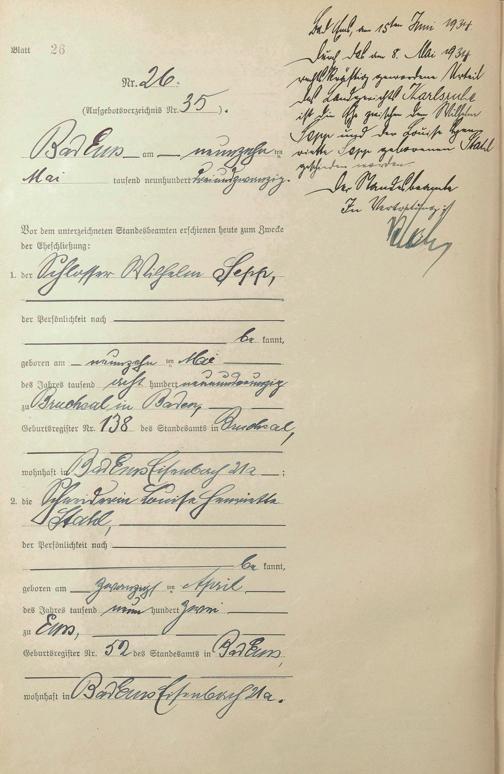 Blatt 26
Nr. 26.
(Aufgebotsverzeichnis Nr. 35).
Bad Ems am neunzehnten
Mai tausend neunhundert dreiundzwanzig.
Vor dem unterzeichneten Standesbeamten erschienen heute zum Zwecke
der Eheschließung:
1. der Schlosser Wilhelm Sepp,
der Persönlichkeit nach
be kannt,
geboren am neunzehnten Mai
des Jahres tausend acht hundert neunundneunzig
zu Bruchsal in Baden,
Geburtsregister Nr. 138 des Standesamts in Bruchsal,
wohnhaft in Bad Ems Eisenbach 21a;
2. die Schneiderin Louise Henriette
Stahl,
der Persönlichkeit nach
be kannt,
geboren am zwanzigsten April
des Jahres tausend neun hundert zwei
zu Ems,
Geburtsregister Nr. 52 des Standesamts in Bad Ems,
wohnhaft in Bad Ems Eisenbach 21a.
Bad Ems, am 15ten Juni 1934
Durch das am 8. Mai 1934
rechtskräftig gewordene Urteil
des Landgerichts Karlsruhe
ist die Ehe zwischen dem Wilhelm
Sepp und der Louise Hen-
riette Sepp geborenen Stahl
geschieden worden.
Der Standesbeamte
In Vertretung